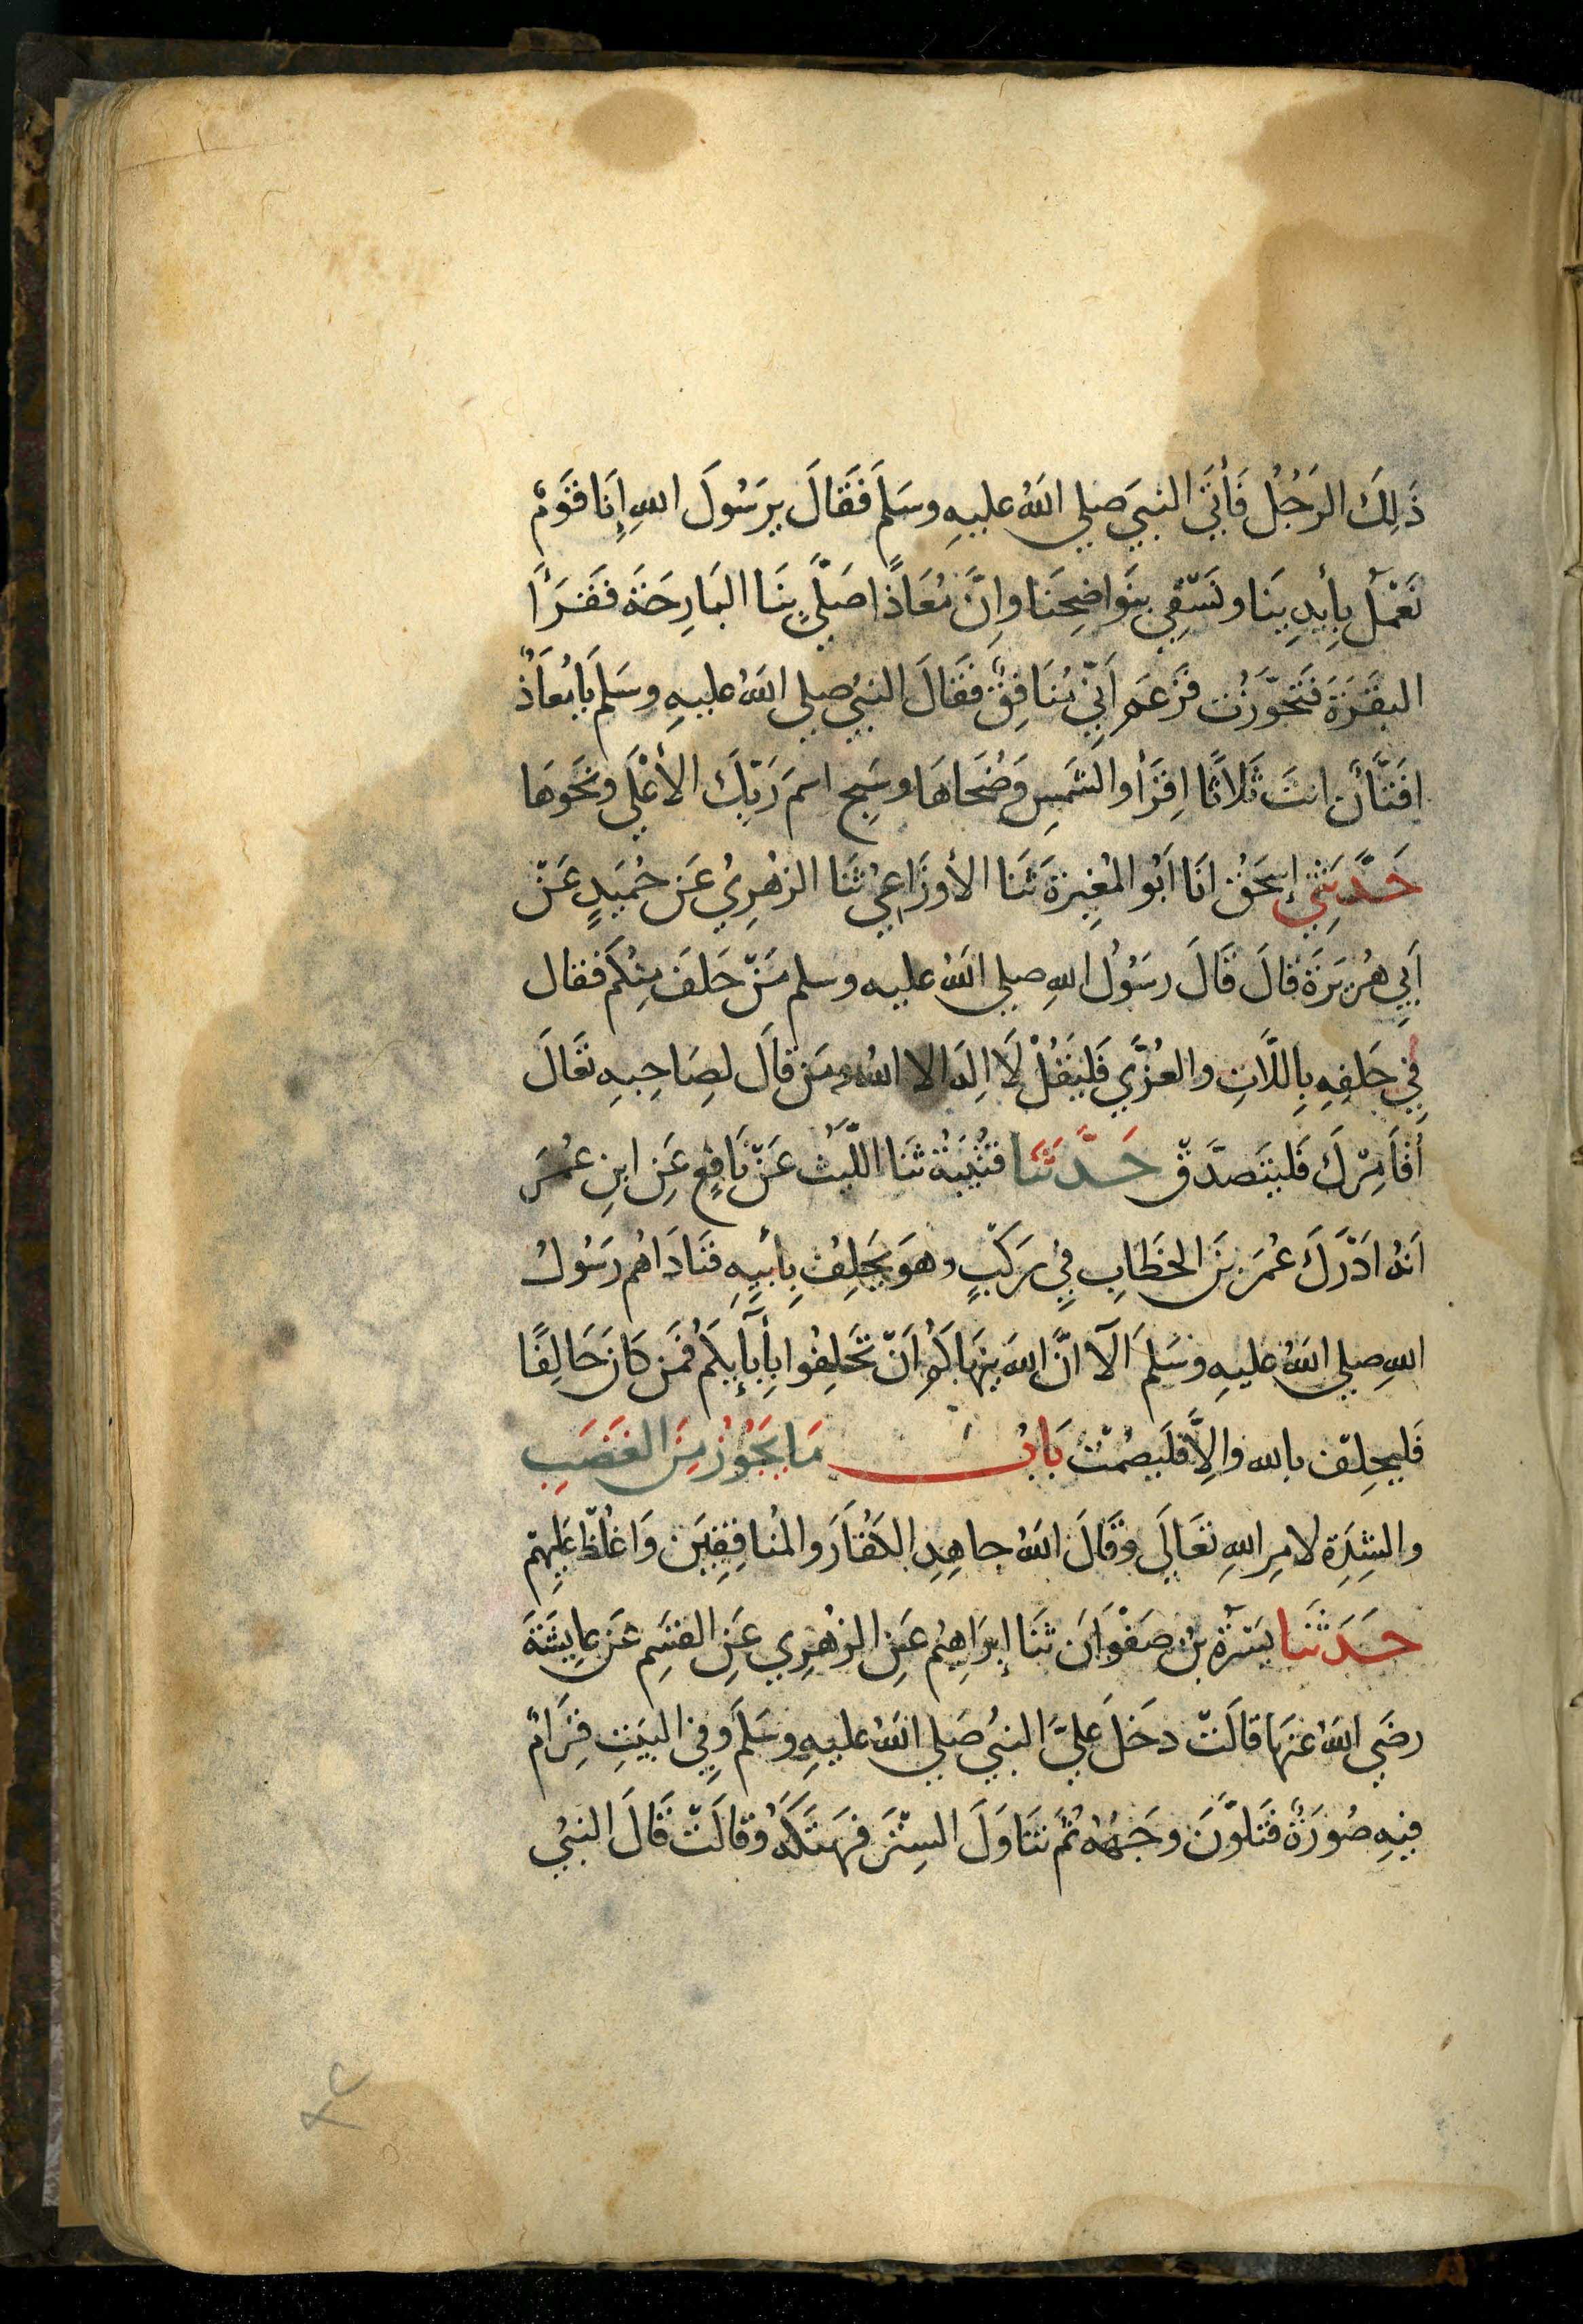 ذَلِكَ الرَجُلُ فَأَتَى النبيَ صلي اللهُ عليهِ وسَلَم فَقَالَ يرَسُولَ اللهِ إِنَا قَوَمٌ
نَعْمَلُ بِأَيدِينَا ونَسْقِي بِنَوَاضِحِنَا وإِنَّ مُعَاذًا صَلَّى بِنَا البَارِحَةَ فَقَرَأَ
البَقَرَةَ فَتَجَوَّزتُ فَزَعَمَ اَنِّي مُنَافِقٌ فَقَالَ النبيُ صلي اللهُ عليهِ وسَلَم يَا مُعَاذُ
افَتَّانٌ انتَ ثَلاثًا اِقرَأ والشَمسِ وَضُحَاهَا وسَبِحِ اسمَ رَبِكَ الأعْلَى ونَحَوهَا
حَدَّثَنِي إِسحَقُ انَا اَبُو المُغِيرَة ثَنَا الأوزَاعِيُ ثَنَا الزهْرِيُ عَن حُمَيدٍ عَنْ
اَبِي هُرَيرَةَ قالَ قَالَ رسَوُلُ اللهِ صلي اللهُ عليه وسلم مَنْ حَلَفَ مِنكُم فقال
فِي حَلفِهِ بِاللَّاتِ والعُزَّي فَليَقُلْ لَا اِلَه الا اللهُ ومَن قَالَ لصَاحِبهِ تَعَالَ
أُقَامِرْكَ فَليَتَصدَّقْ حَدَّثَنَا قُتَيبَةُ ثنَا اللَّيثُ عَنْ نَافِعٍ عَنِ ابنِ عُمَرَ
اَنهُ ادَرَكَ عُمَرَ بنَ الخطَابِ فِي رَكْبٍ وهوَ يَحَلِفُ بِأَبِيهِ فنَادَاهُم رَسُولُ
اللهِ صلي اللهُ عليهِ وسَلَم اَلَا انَّ اللهَ ينهَاكُم اَنْ تَحَلِفُوا بِأَبَآيِكُم فَمَن كَانَ حَالِفًا
فَليحِلفْ بالله والِاَّ فَليَصُمْتْ بَابُ مَا يَجَوُزُ مِنَ الغَضَبِ
والشِدَةِ لامِر اللهِ تعَالَى وقَالَ اللهُ جاهِدِ الكُفَارَ والمُنافِقِيَن وَاغْلُظْ عَلَيهِمْ
حَدَثَنَا يَسَرَةُ بنُ صَفْوَانَ ثَنَا إبرَاهِيمُ عَنِ الزهْرِي عَنِ القسَمِ عَن عايِشَةَ
رضَي اللهُ عنهَا قالَتْ دخَلَ عَليَّ النبيُ صَلي اللهُ عليهِ وسَلَم وفِي البَيتِ قِرَامٌ
فيهِ صُورَةٌ فَتَلَوَّنَ وجَههُ ثُمَ تنَاوَلَ السِتْرَ فهَتَكَهُ وقالَتْ قَالَ النبيُ